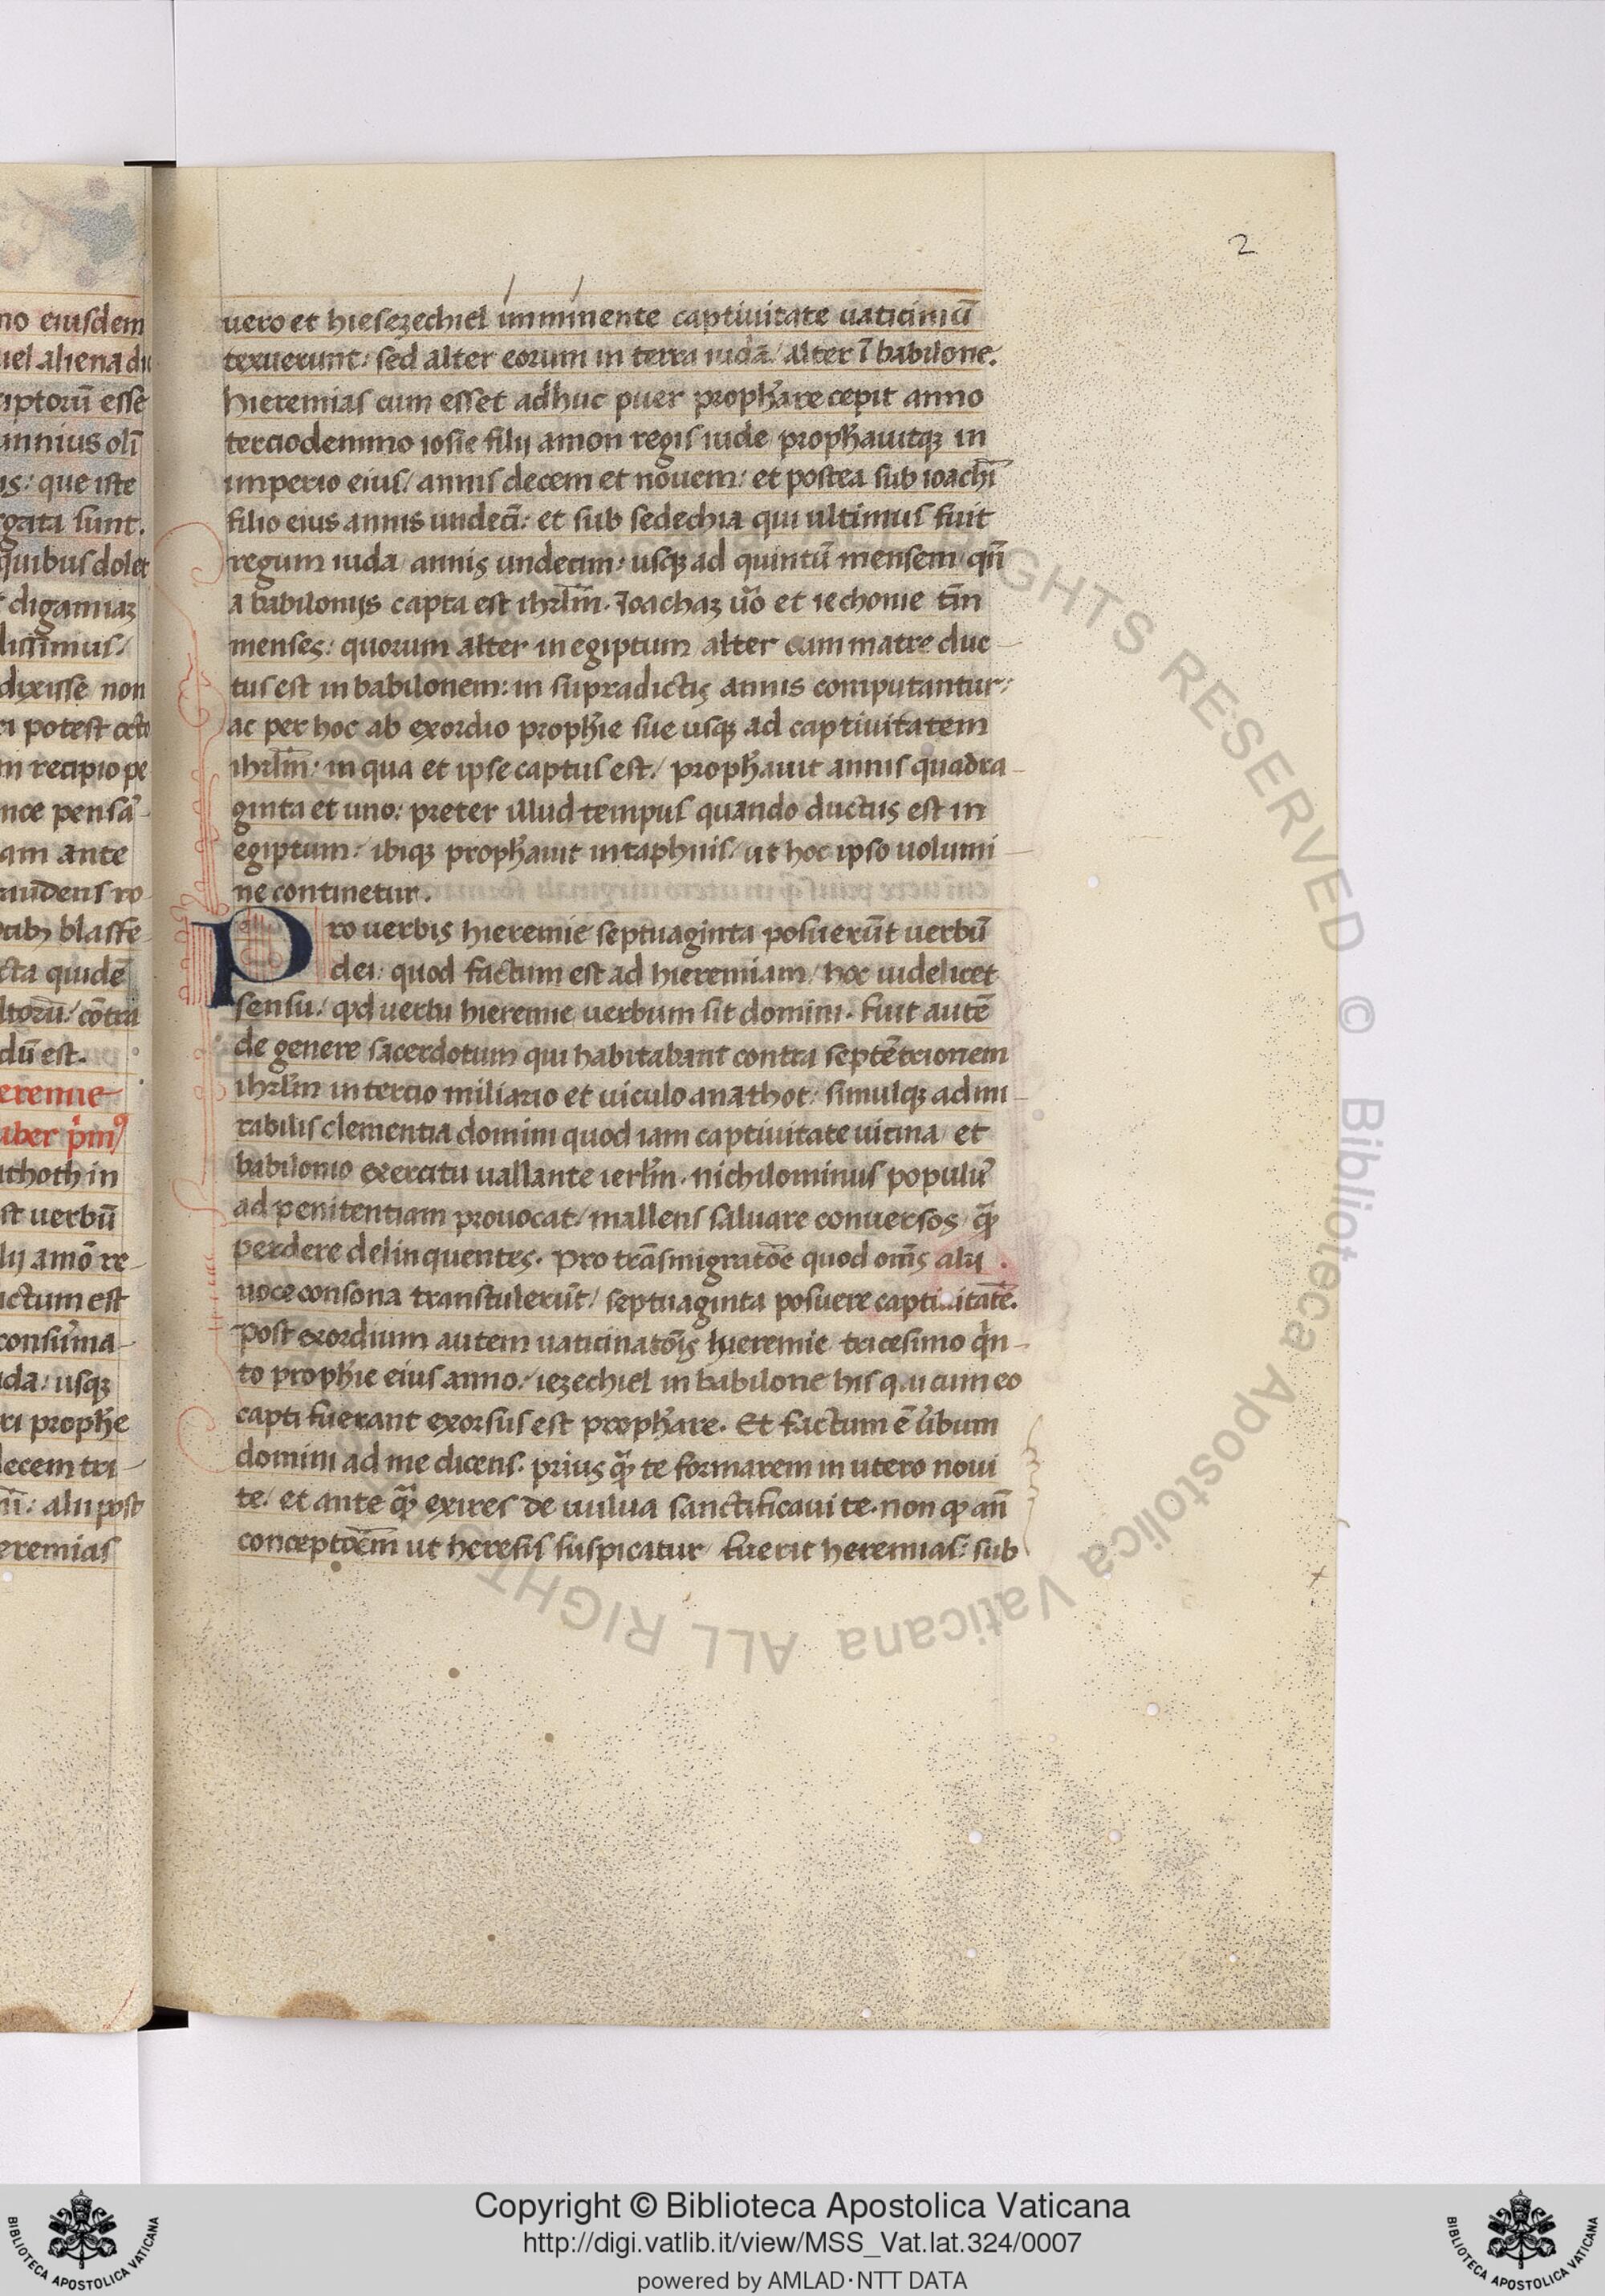 2
uero et hiesezechiel imminente captiuitate uaticiniū
texuerunt: sed alter eorum in terra iuda/ alter ī babilone.
hieremias cum esset adhuc puer proph̄are cepit anno
terciodecimo iosie filij amon regis iude proph̄auitqꝫ in
imperio eius/ annis decem et nouem: et postea sub ioachī
filio eius annis undecī: et sub sedechia qui ultimus fuit
regum iuda annis undecim: usqꝫ ad quintū mensem qn̄
a babilonijs capta est ihrl̄m. Ioachaz ūo et iechonie tm̄
menses: quorum alter in egiptum alter cum matre duc
tus est in babilonem: in supradictis annis computantur:
ac per hoc ab exordio proph̄ie sue usqꝫ ad captiuitatem
ihrl̄m: in qua et ipse captus est/ proph̄auit annis quadra
ginta et uno: preter illud tempus quando ductus est in
egiptum: ibiqꝫ proph̄auit in taphnis/ ut hoc ipso uolumi
ne continetur.
Pro uerbis hieremie septuaginta posuerūt uerbū
dei: quod factum est ad hieremiam/ hoc uidelicet
sensu/ qd uerbu hieremie uerbum sit domini. fuit autē
de genere sacerdotum qui habitabant contra septētrionem
ihrl̄m in tercio miliario et uiculo anathot: simulqꝫ admi
rabilis clementia domini quod iam captiuitate uicina/ et
babilonio exercitu uallante ierl̄m. nichilominus populū
ad penitentiam prouocat/ mallens saluare conuersos/ qꝫ̄
perdere delinquentes. Pro trāsmigratōe quod om̄s alij
uoce consona transtulerūt/ septuaginta posuere captiuitatē.
Post exordium autem uaticinatōis hieremie tricesimo qin
to proph̄ie eius anno/ iezechiel in babilone his qui cum eo
capti fuerant exorsus est proph̄are. Et factum ē ūbum
domini ad me dicens. prius qꝫ̄ te formarem in utero noui
te/ et ante qꝫ̄ exires de uulua sanctificaui te. non ꝙ an̄
conceptōem ut heresis suspicatur fuerit heremias: sub
no eiusdem
uel aliena di
iptorū esse
annius olī
is: que iste
rgata sunt.
quibus dolet
digamiaz
dixisse non
ri potest octo
m recipio pe
nce pensā
am ante
audens ro
cta quidē
ltorū/ cōtra
dū est.
eremie
iber pm᷒
thoth in
st uerbū
lij amō re
actum est
consūma
da: usqꝫ
ri proph̄e
decem tri
eremias
Biblioteca Apostolica Vaticana ALL RIGHTS RESERVED ©
Copyright © Biblioteca Apostolica Vaticana
http://digi.vatlib.it/view/MSS_Vat.lat.324/0007
powered by AMLAD·NTT DATA
BIBLIOTECA APOSTOLICA VATICANA
BIBLIOTECA APOSTOLICA VATICANA